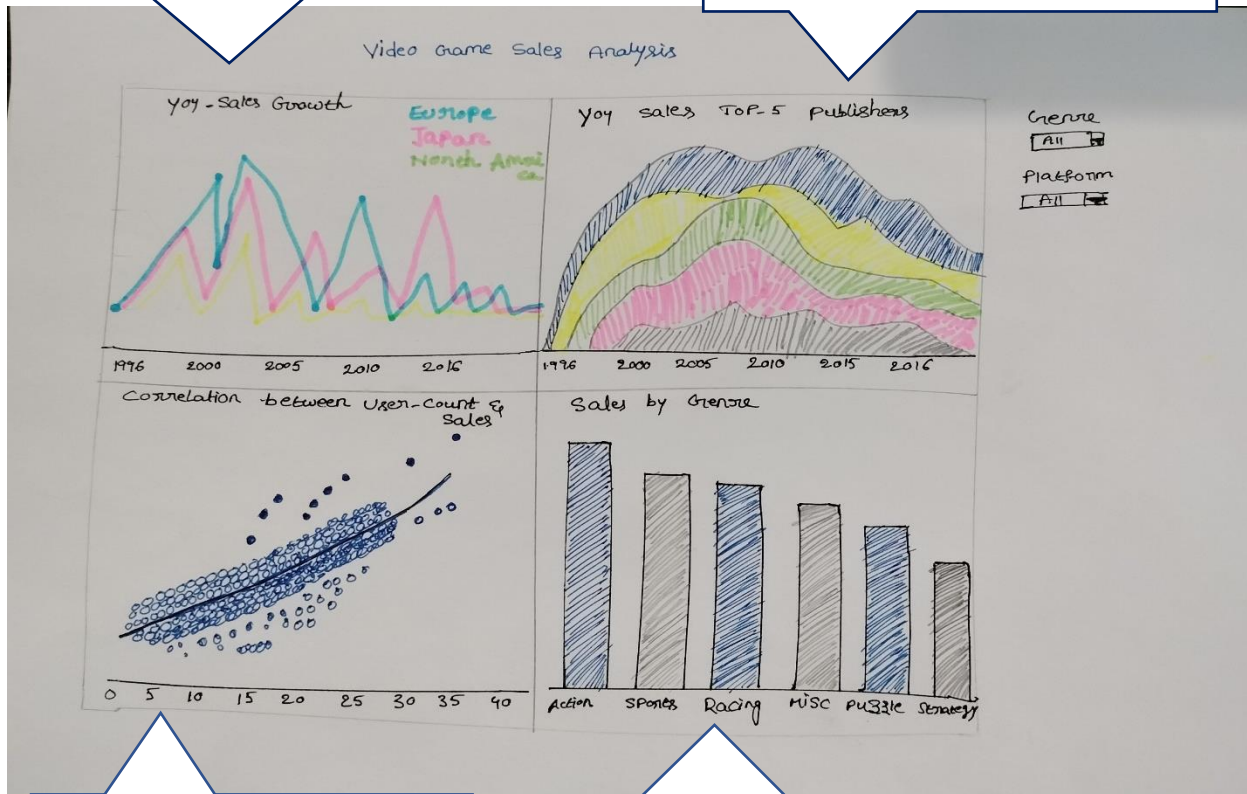 Video Game Sales Analysis
YoY-Sales Growth
Europe
Japan
North Ameri
ca
1996 2000 2005 2010 2016
YoY Sales TOP-5 Publishers
1996 2000 2005 2010 2015 2016
Genre
All
Platform
All
Correlation between User-Count &
Sales
0 5 10 15 20 25 30 35 40
Sales by Genre
Action Sports Racing Misc Puzzle Strategy